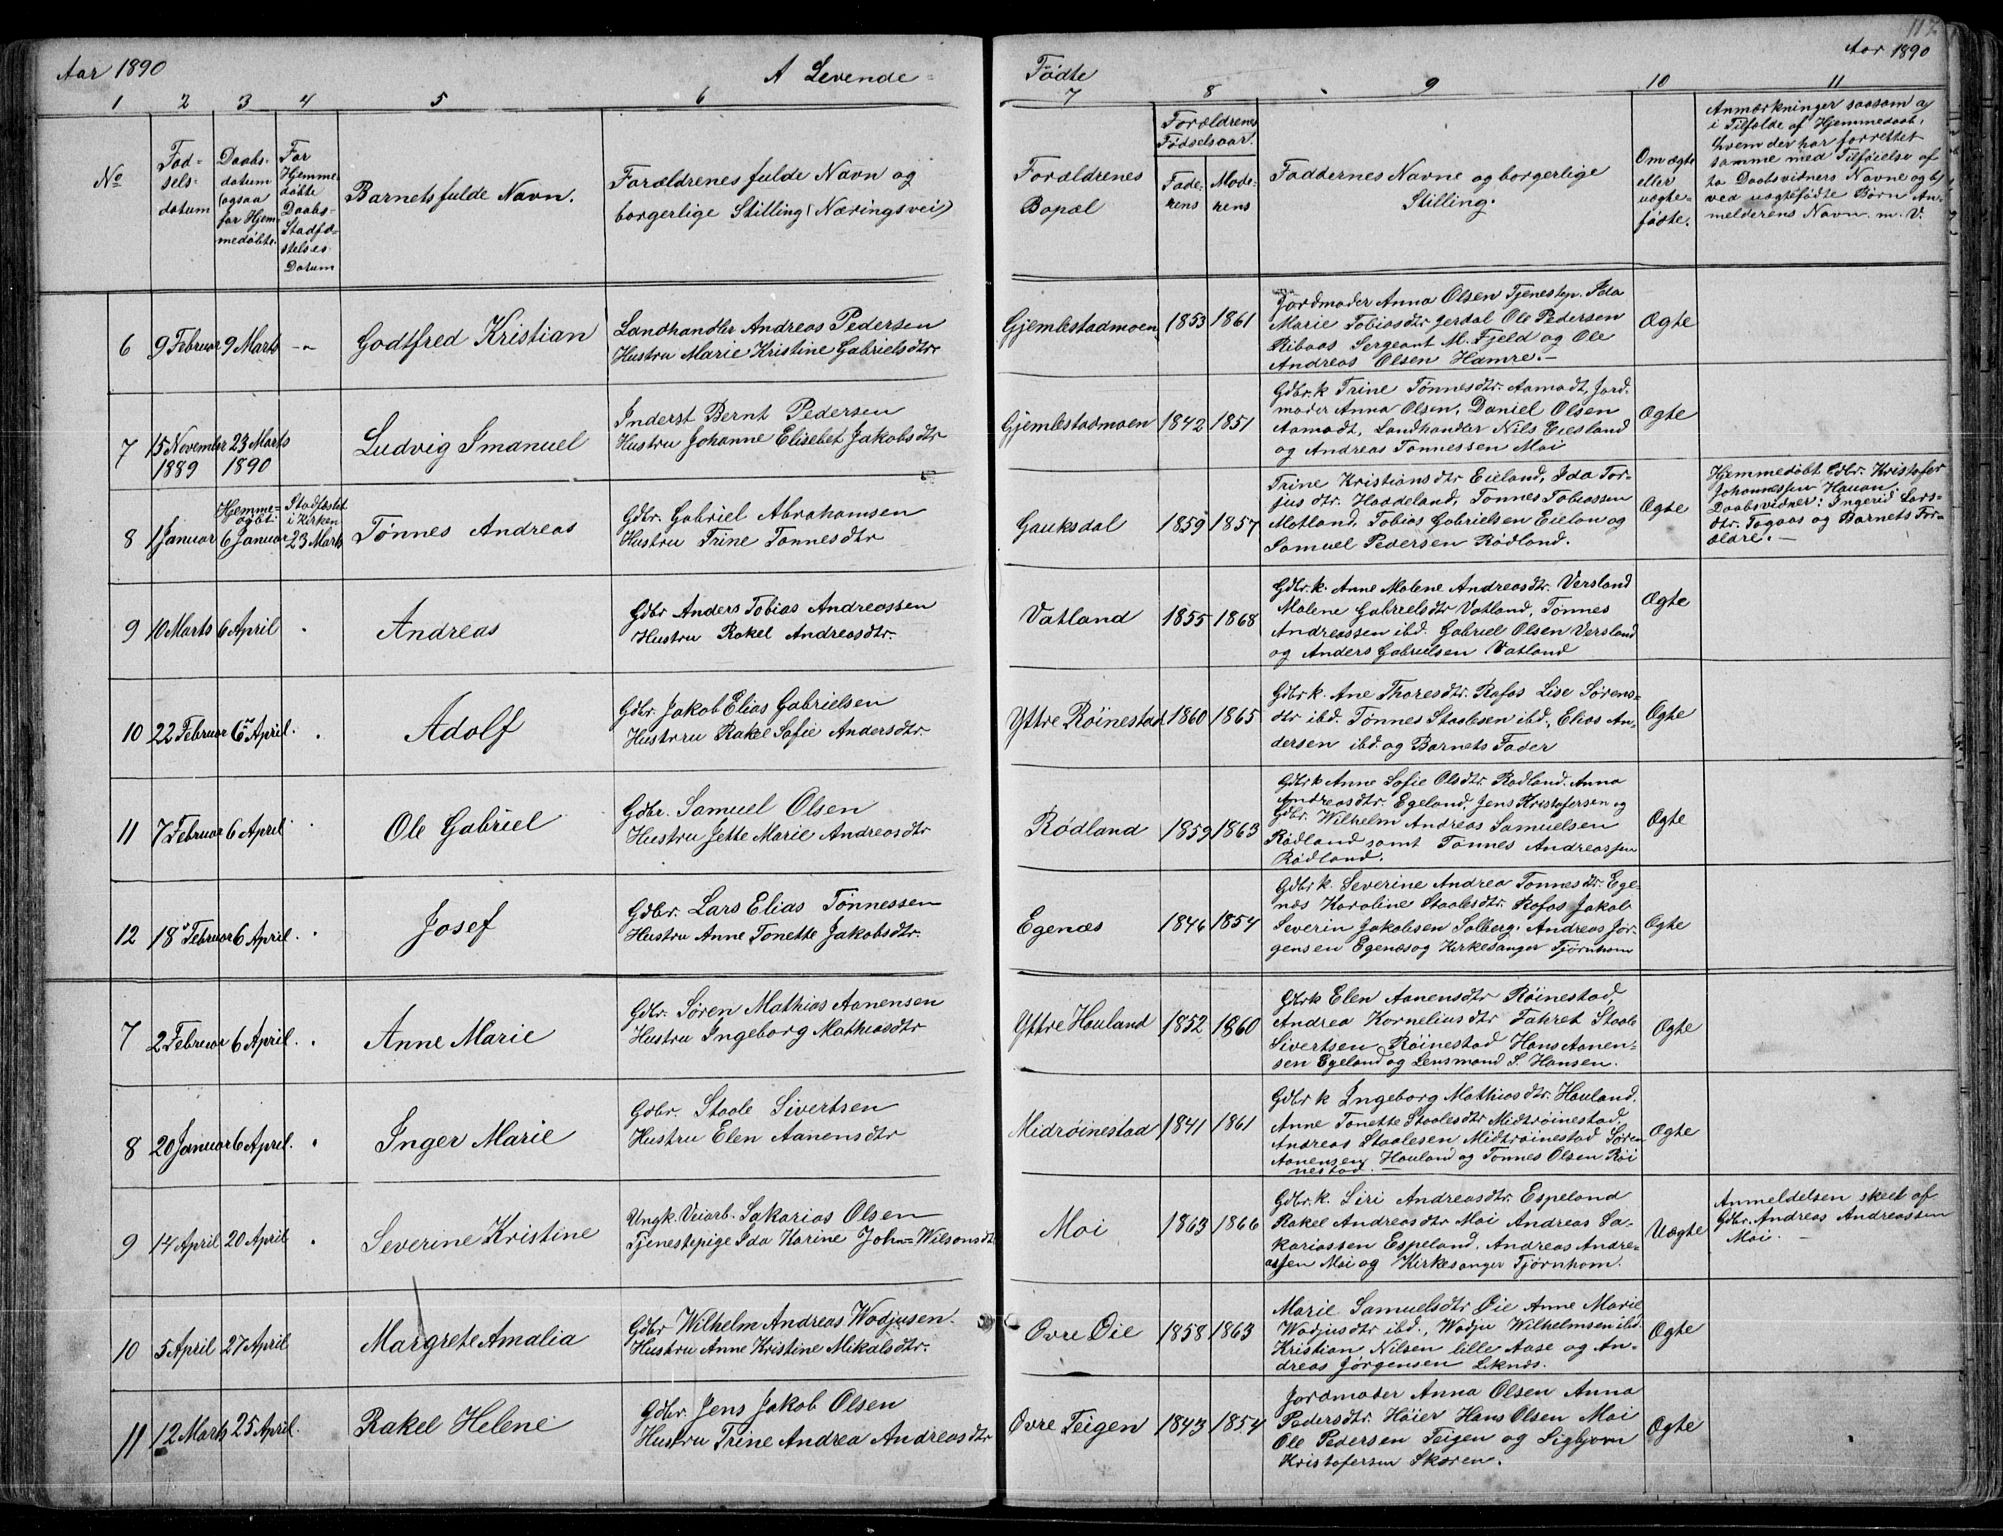 117
Aar 1890
A Levende
Fødte
Aar 1890
1 2 3 4 5 6 7 8 9 10 11
No
Fød-
sels-
datum
Daabs-
datum
(ogsaa
for Hjem-
medøbte.
For
Hjemme-
døbte
Daabs-
Stadfæ-
stelses
Datum
Barnets fulde Navn.
Forældrenes fulde Navn og
borgerlige Stilling (Næringsvei)
Forældrenes
Bopæl
Forældrenes
Fødselsaar.
Fade-
rens
Mode-
rens
Faddernes Navne og borgerlige
Stilling.
Om ægte
eller
uægte-
fødte.
Anmærkninger saasom a)
i Tilfælde af Hjemmedaab,
hvem der har forrettet
samme med Tilføielse af
to Daabsvidners Navne og b)
ved uægtefødte Børn An-
melderens Navn. m. V.
6 9 Februar 9 Marts -"- Godtfred Kristian
Landhandler Andreas Pedersen
Hustru Marie Kristine Gabrielsdtr.
Gjemlestadmoen 1853 1861
Jordmoder Anna Olsen Tjenestep. Ida
Marie Tobiasdtr Jerdal Ole Pedersen
Ribaas Sergeant M. Fjeld og Ole
Andreas Olsen Hamre.-
Ægte
7 15 November 23 Marts
1889 1890
Ludvig Imanuel
Inderst Bernt Pedersen
Hustru Johanne Elisebet Jakobsdtr
Gjemlestadmoen 1842 1851
Gdbr.k Trine Tønnesdtr. Aamodt, Jord-
moder Anna Olsen, Daniel Olsen
Aamodt, Landhandler Nils Eiesland
og Andreas Tønnessen Moi
Ægte
8 1 Januar
Hjemme-
døbt.
6 Januar
Stadfæstet
i Kirken
23 Marts
Tønnes Andreas
Gdbr. Gabriel Abrahamsen
Hustru Trine Tønnesdtr
Gauksdal 1859 1857
Trine Kristiansdtr Eieland, Ida Tor-
jusdtr. Haddeland, Tønnes Tobiassen
Motland. Tobias Gabrielsen Eielan og
Samuel Pedersen Rødland.
Ægte
Hjemmedøbt Gdbr. Kristofer
Johannessen Hauan.
Daabsvidner: Ingerid Lars-
dtr. Fogaas og Barnets For-
ældre.-
9 10 Marts 6 April " Andreas
Gdbr Anders Tobias Andreassen
Hustru Rakel Andreasdtr.
Vatland 1855 1868
Gdbr.k. Anne Malene Andreasdtr. Versland
Malene Gabrielsdtr Vatland, Tønnes
Andreassen ibd. Gabriel Olsen Versland
og Anders Gabrielsen Vatland
Ægte
10 22 Februar 6 April. " Adolf
Gdbr. Jakob Elias Gabrielsen
Hustru Rakel Sofie Andersdtr
Yttre Røinestad 1860 1865
Gdbr k. Ane Thoresdtr. Rafos Lise Sørens-
dtr ibd. Tønnes Staalesen ibd., Elias An-
dersen ibd. og Barnets Fader
Ægte
11 7 Februar 6 April " Ole Gabriel
Gdbr. Samuel Olsen
Hustru Jette Marie Andreasdtr
Rødland 1859 1863
Gdbr k Anne Sofie Olsdtr. Rødland. Anna
Andreasdtr. Egeland, Jens Kristofersen og
Gdbr. Wilhelm Andreas Samuelsen
Rødland samt Tønnes Andreassen
Rødland.
Ægte
12 18 Februar 6 April. " Josef
Gdbr. Lars Elias Tønnessen
Hustru Anne Tonette Jakobsdtr.
Egenæs 1846 1854
Gdbr k. Severine Andrea Tønnesdtr. Ege-
næs Karoline Staalesdtr. Rafos Jakob
Severin Jakobsen Solberg. Andreas Jør-
gensen Egenæs og Kirkesanger Tjørnhom
Ægte
7 2 Februar 6 April. " Anne Marie
Gdbr. Søren Mathias Aanensen
Hustru Ingeborg Mathiasdtr
Yttre Hauland 1852 1860
Gdbr k Elen Aanensdtr Røinestad,
Andrea Korneliusdtr Fahret Staale
Sivertsen Røinestad Hans Aanen-
sen Egeland og Lensmand S. Hansen.
Ægte
8 20 Januar 6 April. " Inger Marie
Gdbr. Staale Sivertsen
Hustru Elen Aanensdtr
Midrøinestad 1841 1861
Gdbr k Ingeborg Mathiasdtr. Hauland.
Anne Tonette Staalesdtr Midtrøinestad,
Andreas Staalesen Midtrøinestad Søren
Aanensen Hauland og Tønnes Olsen Røi
nestad.-
Ægte
9 14 April 20 April. " Severine Kristine
Ungk. Veiarb. Sakarias Olsen
Tjenestepige Ida Karine John-Wilsonsdtr
Moi 1863 1866
Gdbr. k. Siri Andreasdtr. Espeland
Rakel Andreasdtr Moi Andreas Sa-
kariassen Espeland. Andreas Andre-
assen Moi og Kirkesanger Tjørnhom.
Uægte
Anmeldelsen skeet af
Gdbr. Andreas Andreassen
Moi.-
10 5 April 27 April Margrete Amalia
Gdbr Wilhelm Andreas Wodjusen.
Hustru Anne Kristine Mikalsdtr.
Øvre Øie 1858 1863
Marie Samuelsdtr Øie Anne Marie
Wodjusdtr ibd., Wodju Wilhelmsen ibd.
Kristian Nilsen lille Aase og An-
dreas Jørgensen Liknæs.
Ægte
11 12 Marts 25 April. Rakel Helene
Gdbr. Jens Jakob Olsen
Hustru Trine Andrea Andreasdtr
Øvre Teigen 1843 1854
Jordmoder Anna Olsen Anna
Pedersdtr. Høier Hans Olsen Moi
Ole Pedersen Teigen og Sigbjørn
Kristofersen Skoren.
Ægte